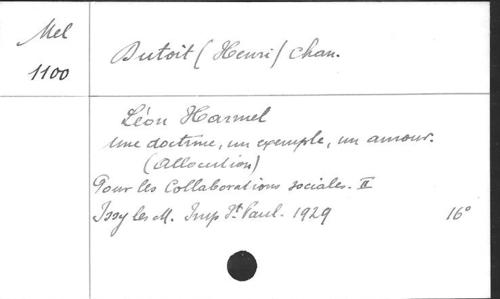 Mel
1100
Dutoit (Henri) chan.
Léon Harmel
une doctrine, un exemple, un amour.
(Allocution)
Pour les Collaborations sociales. II
Issy les M. Imp St Paul. 1929 16°